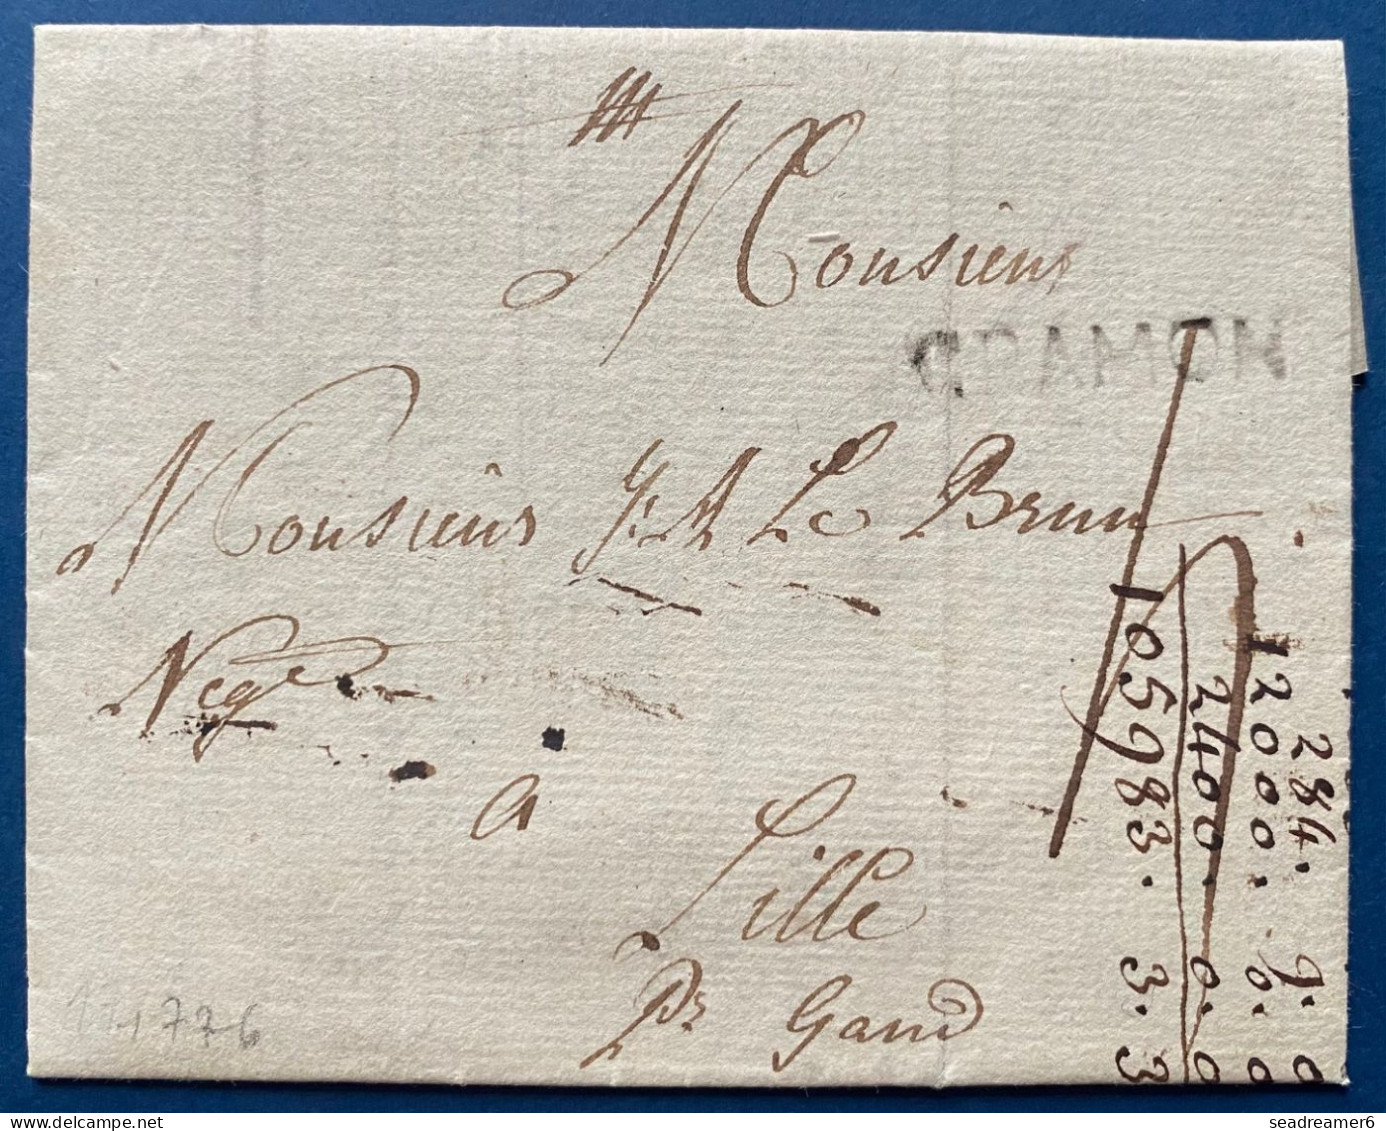 Monsieur
GRAMON
Monsieur J: A Le Brun
Neg.
a
Lille
Pr Gand
284. 9. 0
12000. 0. 0
2400. 0. 0
105983. 3. 3
1776
© seadreamer6